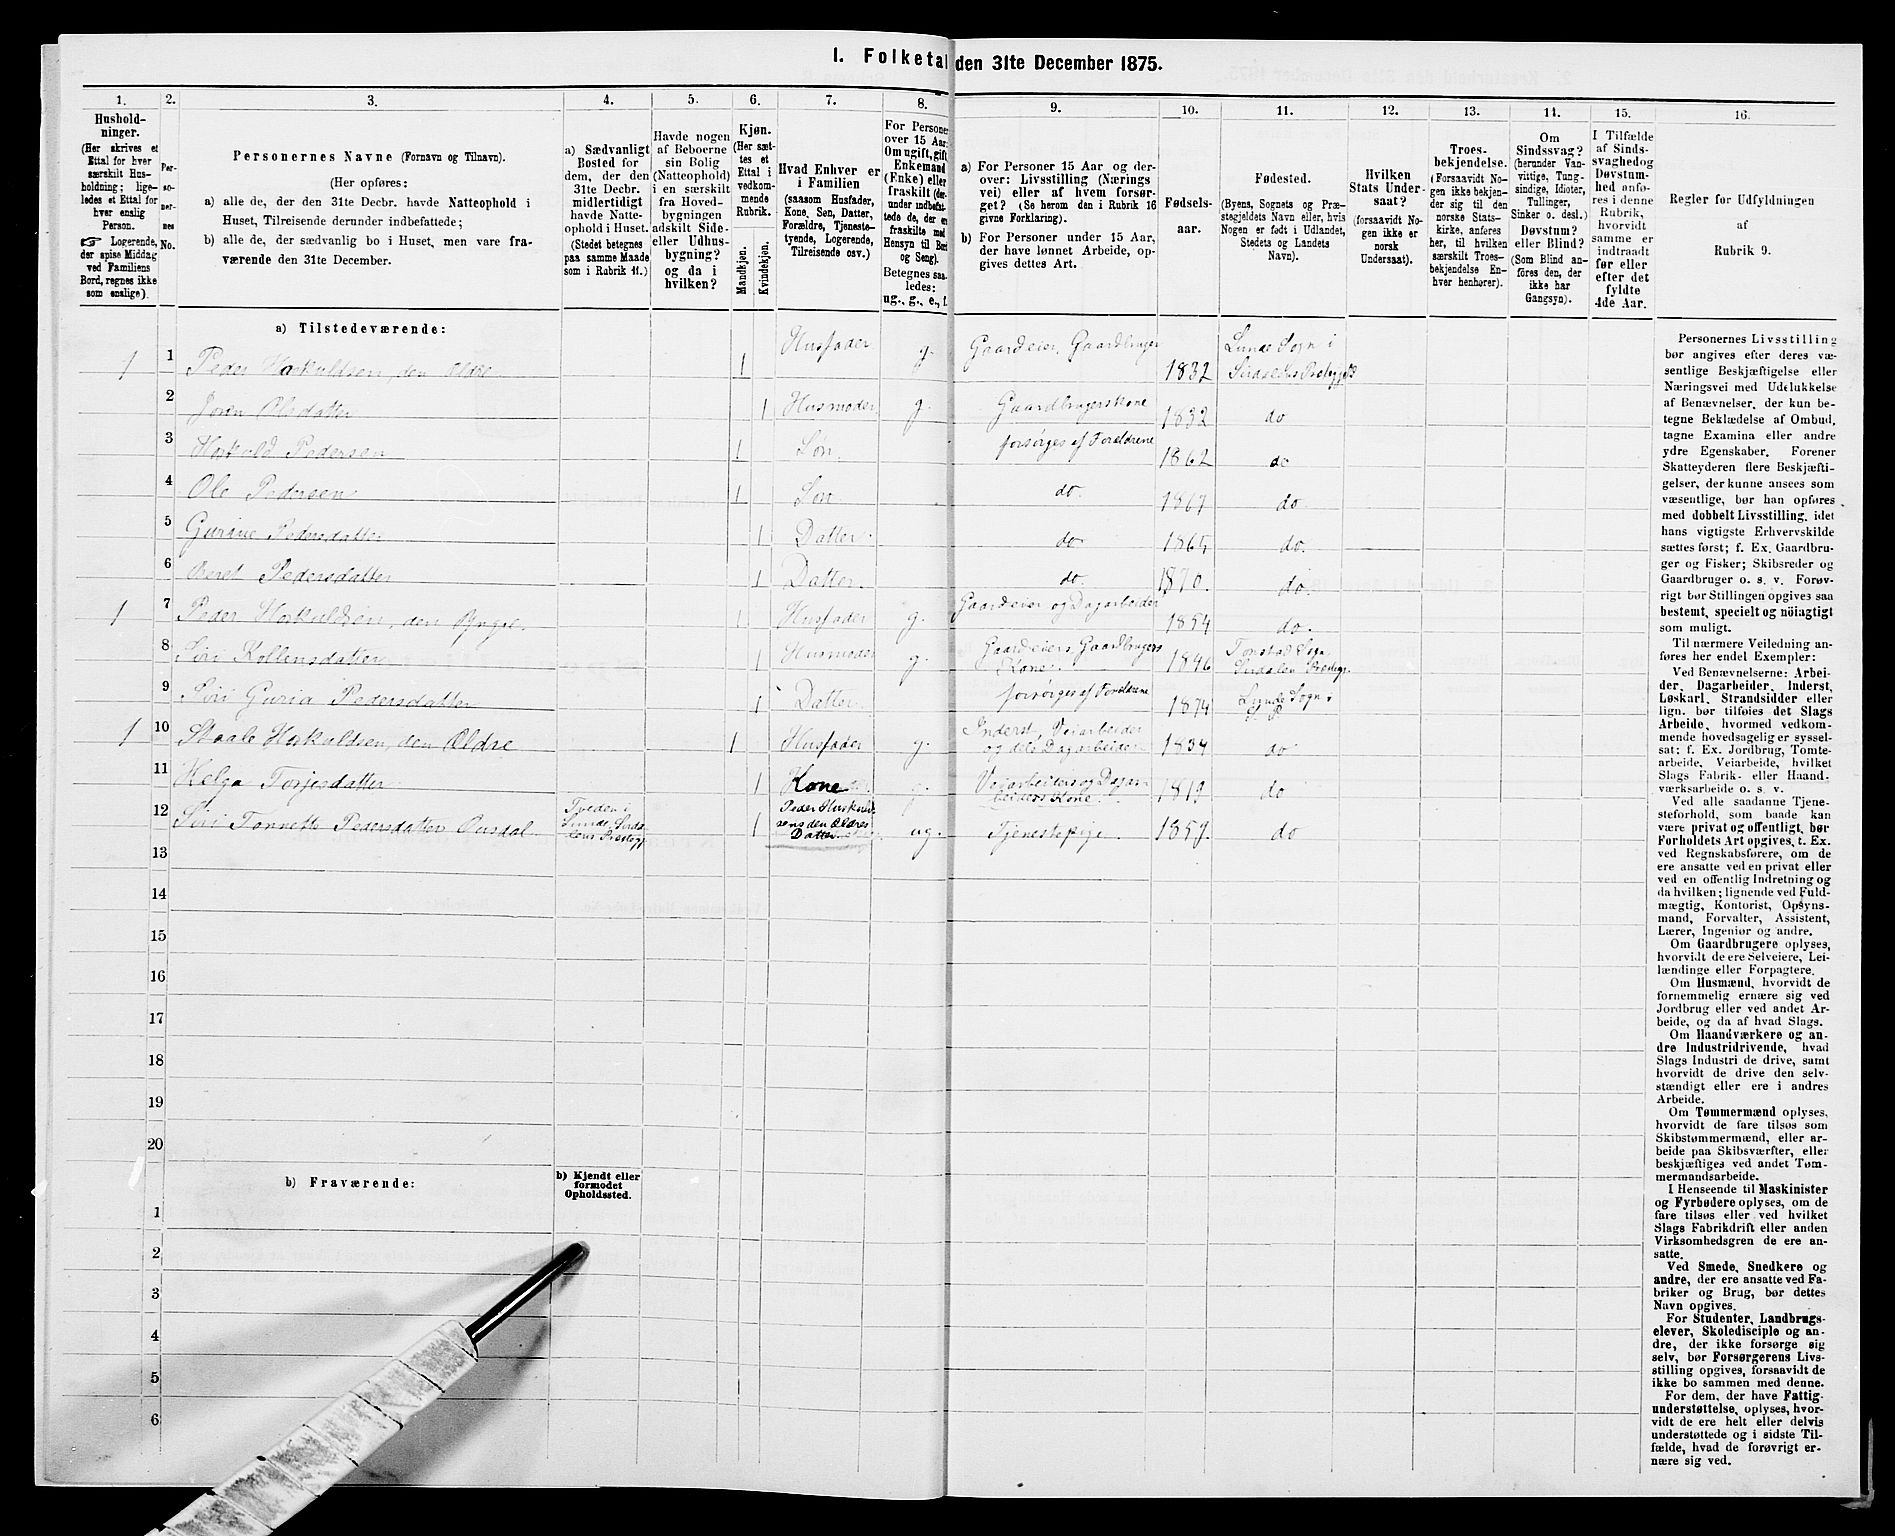 I. Folketal den 31te December 1875.
1. 2. 3. 4. 5. 6. 7. 8. 9. 10. 11. 12. 13. 14. 15. 16.
Hushold-
ninger.
(Her skrives et
Ettal for hver
særskilt Hus-
holdning; lige-
ledes et Ettal for
hver enslig
Person.
☞ Logerende,
der spise Middag
ved Familiens
Bord, regnes ikke
som enslige).
Per-
so-
ner-
nes
No.
Personernes Navne (Fornavn og Tilnavn).
(Her opføres:
a) alle de, der den 31te Decbr. havde Natteophold i
Huset, Tilreisende derunder indbefattede;
b) alle de, der sædvanlig bo i Huset, men vare fra-
værende den 31te December.
a) Sædvanligt
Bosted for
dem, der den
31te Decbr.
midlertidigt
havde Natte-
ophold i Huset.
(Stedet betegnes
paa samme Maade
som i Rubrik 11.)
Havde nogen
af Beboerne
sin Bolig
(Natteophold)
i en særskilt
fra Hoved-
bygningen
adskilt Side-
eller Udhus-
bygning?
og da i
hvilken?
Kjøn.
(Her sæt-
tes et
Ettal i
vedkom-
mende
Rubrik.
Mandkjøn.
Kvindekjøn.
Hvad Enhver er
i Familien
(saasom Husfader,
Kone, Søn, Datter,
Forældre, Tjeneste-
tyende, Logerende,
Tilreisende osv.)
For Personer
over 15 Aar:
Om ugift, gift,
Enkemand
(Enke) eller
fraskilt (der-
under indbefat-
tede de, der er
fraskilte med
Hensyn til Bord
og Seng).
Betegnes saa-
ledes:
ug., g., e., f.
a) For Personer 15 Aar og der-
over: Livsstilling (Nærings
vei) eller af hvem forsør-
get? (Se herom den i Rubrik 16
givne Forklaring).
b) For Personer under 15 Aar,
der have lønnet Arbeide, op-
gives dettes Art.
Fødsels-
aar.
Fødested.
(Byens, Sognets og Præ-
stegjeldets Navn eller, hvis
Nogen er født i Udlandet,
Stedets og Landets
Navn).
Hvilken
Stats Under-
saat?
(forsaavidt No-
gen ikke er
norsk
Undersaat).
Troes-
bekjendelse.
(Forsaavidt No-
gen ikke bekjen-
der sig til den
norske Stats-
kirke, anføres
her, til hvilken
særskilt Troes-
bekjendelse En-
hver henhører).
Om
Sindssvag?
(herunder Van-
vittige, Tung-
sindige, Idioter,
Tullinger,
Sinker o. desl.)
Døvstum?
eller Blind?
(Som Blind an-
føres den, der
ikke har
Gangsyn).
I Tilfælde
af Sinds-
svaghedog
Døvstum-
hed anfø-
res i denne
Rubrik,
hvorvidt
samme er
indtraadt
før eller
efter det
fyldte
4de Aar.
Regler for Udfyldningen
af
Rubrik 9.
a) Tilstedeværende:
1 1 Peder Hoskuldsen, den Ældre 1 Husfader g. Gaardeier, Gaardbruger 1832 Lunde Sogn i
Sirdalens Prstgj.
2 Joren Olsdatter 1 Husmoder g. Gaardbrugerskone 1832 do
3 Hoskuld Pedersen 1 Søn forsørges af Forældrene 1862 do
4 Ole Pedersen 1 Søn do. 1867 do.
5 Gurine Pedersdatter 1 Datter do 1865 do.
6 Beret Pedersdatter 1 Datter. do. 1870. do.
1 7 Peder Hoskuldsen, den Yngre. 1 Husfader g. Gaardeier og Dagarbeider 1854 do.
8 Siri Kollensdatter 1 Husmoder g. Gaardeiers, Gaardbrugers
Kone. 1846 Tonstad Sogn
Sirdalen Prstgj.
9 Siri Guria Pedersdatter 1 Datter forsørges af Forældrene 1874 Lunde Sogn i
S. P.
1 10 Staale Hoskuldsen, den Ældre 1 Husfader g. Inderst, Veiarbeider
og dels Dagarbeider 1834 do
11 Helga Torjesdatter 1 Kone g. Veiarbeiders og Dagar-
beiders Kone. 1819 do
12 Siri Tonnette Pedersdatter Ousdal Tveden i
Lunde, Sirda-
lens Prstgj. 1 Peder Huskuld
sens den Ældres
Datter ug. Tjenestepige 1857. do
13
14
15
16
17
18
19
20
b) Fraværende:
b) Kjendt eller
formodet
Opholdssted.
1
2
3
4
5
6
Personernes Livsstilling
bør angives efter deres væ-
sentlige Beskjæftigelse eller
Næringsvei med Udelukkelse
af Benævnelser, der kun be-
tegne Beklædelse af Ombud,
tagne Examina eller andre
ydre Egenskaber. Forener
Skatteyderen flere Beskjæfti-
gelser, der kunne ansees som
væsentlige, bør han opføres
med dobbelt Livsstilling, idet
hans vigtigste Erhvervskilde
sættes først; f. Ex. Gaardbru-
ger og Fisker; Skibsreder og
Gaardbruger o. s. v. Forøv-
rigt bør Stillingen opgives saa
bestemt, specielt og nöiagtigt
som muligt.
Til nærmere Veiledning an-
føres her endel Exempler:
Ved Benævnelserne: Arbei-
der, Dagarbeider, Inderst,
Løskarl, Strandsidder eller
lign. bør tilføies det Slags
Arbeide, hvormed vedkom-
mende hovedsagelig er syssel-
sat; f. Ex. Jordbrug, Tomte-
arbeide, Veiarbeide, hvilket
Slags Fabrik- eller Haand-
værksarbeide o. s. v.
Ved alle saadanne Tjene-
steforhold, som baade kan
være privat og offentligt, bør
Forholdets Art opgives, t. Ex.
ved Regnskabsførere, om de
ere ansatte ved en privat eller
ved en offentlig Indretning og
da hvilken; lignende ved Fuld-
mægtig, Kontorist, Opsyns-
mand, Forvalter, Assistent,
Lærer, Ingeniør og andre.
Om Gaardbrugere oplyses,
hvorvidt de ere Selveiere, Lei-
lændinge eller Forpagtere.
Om Husmænd, hvorvidt de
fornemmelig ernære sig ved
Jordbrug eller ved andet Ar-
beide, og da af hvad Slags.
Om Haandværkere og an-
dre Industridrivende, hvad
Slags Industri de drive, samt
hvorvidt de drive den selv-
stændigt eller ere i andres
Arbeide.
Om Tømmermænd oplyses,
hvorvidt de fare tilsøs som
Skibstømmermænd, eller ar-
beide paa Skibsværfter, eller
beskjæftiges ved andet Tøm-
mermandsarbeide.
I Henseende til Maskinister
og Fyrbødere oplyses, om de
fare tilsøs eller ved hvilket
Slags Fabrikdrift eller anden
Virksomhedsgren de ere an-
satte.
Ved Smede, Snedkere og
andre, der ere ansatte ved Fa-
briker og Brug, bør dettes
Navn opgives.
For Studenter, Landbrugs-
elever, Skoledisciple og an-
dre, der ikke forsørge sig
selv, bør Forsørgerens Livs-
stilling opgives, forsaavidt de
ikke bo sammen med denne.
For dem, der have Fattig-
understøttelse, oplyses, hvor-
vidt de ere helt eller delvis
understøttede og i sidste Til-
fælde, hvad de forøvrigt er-
nære sig ved.